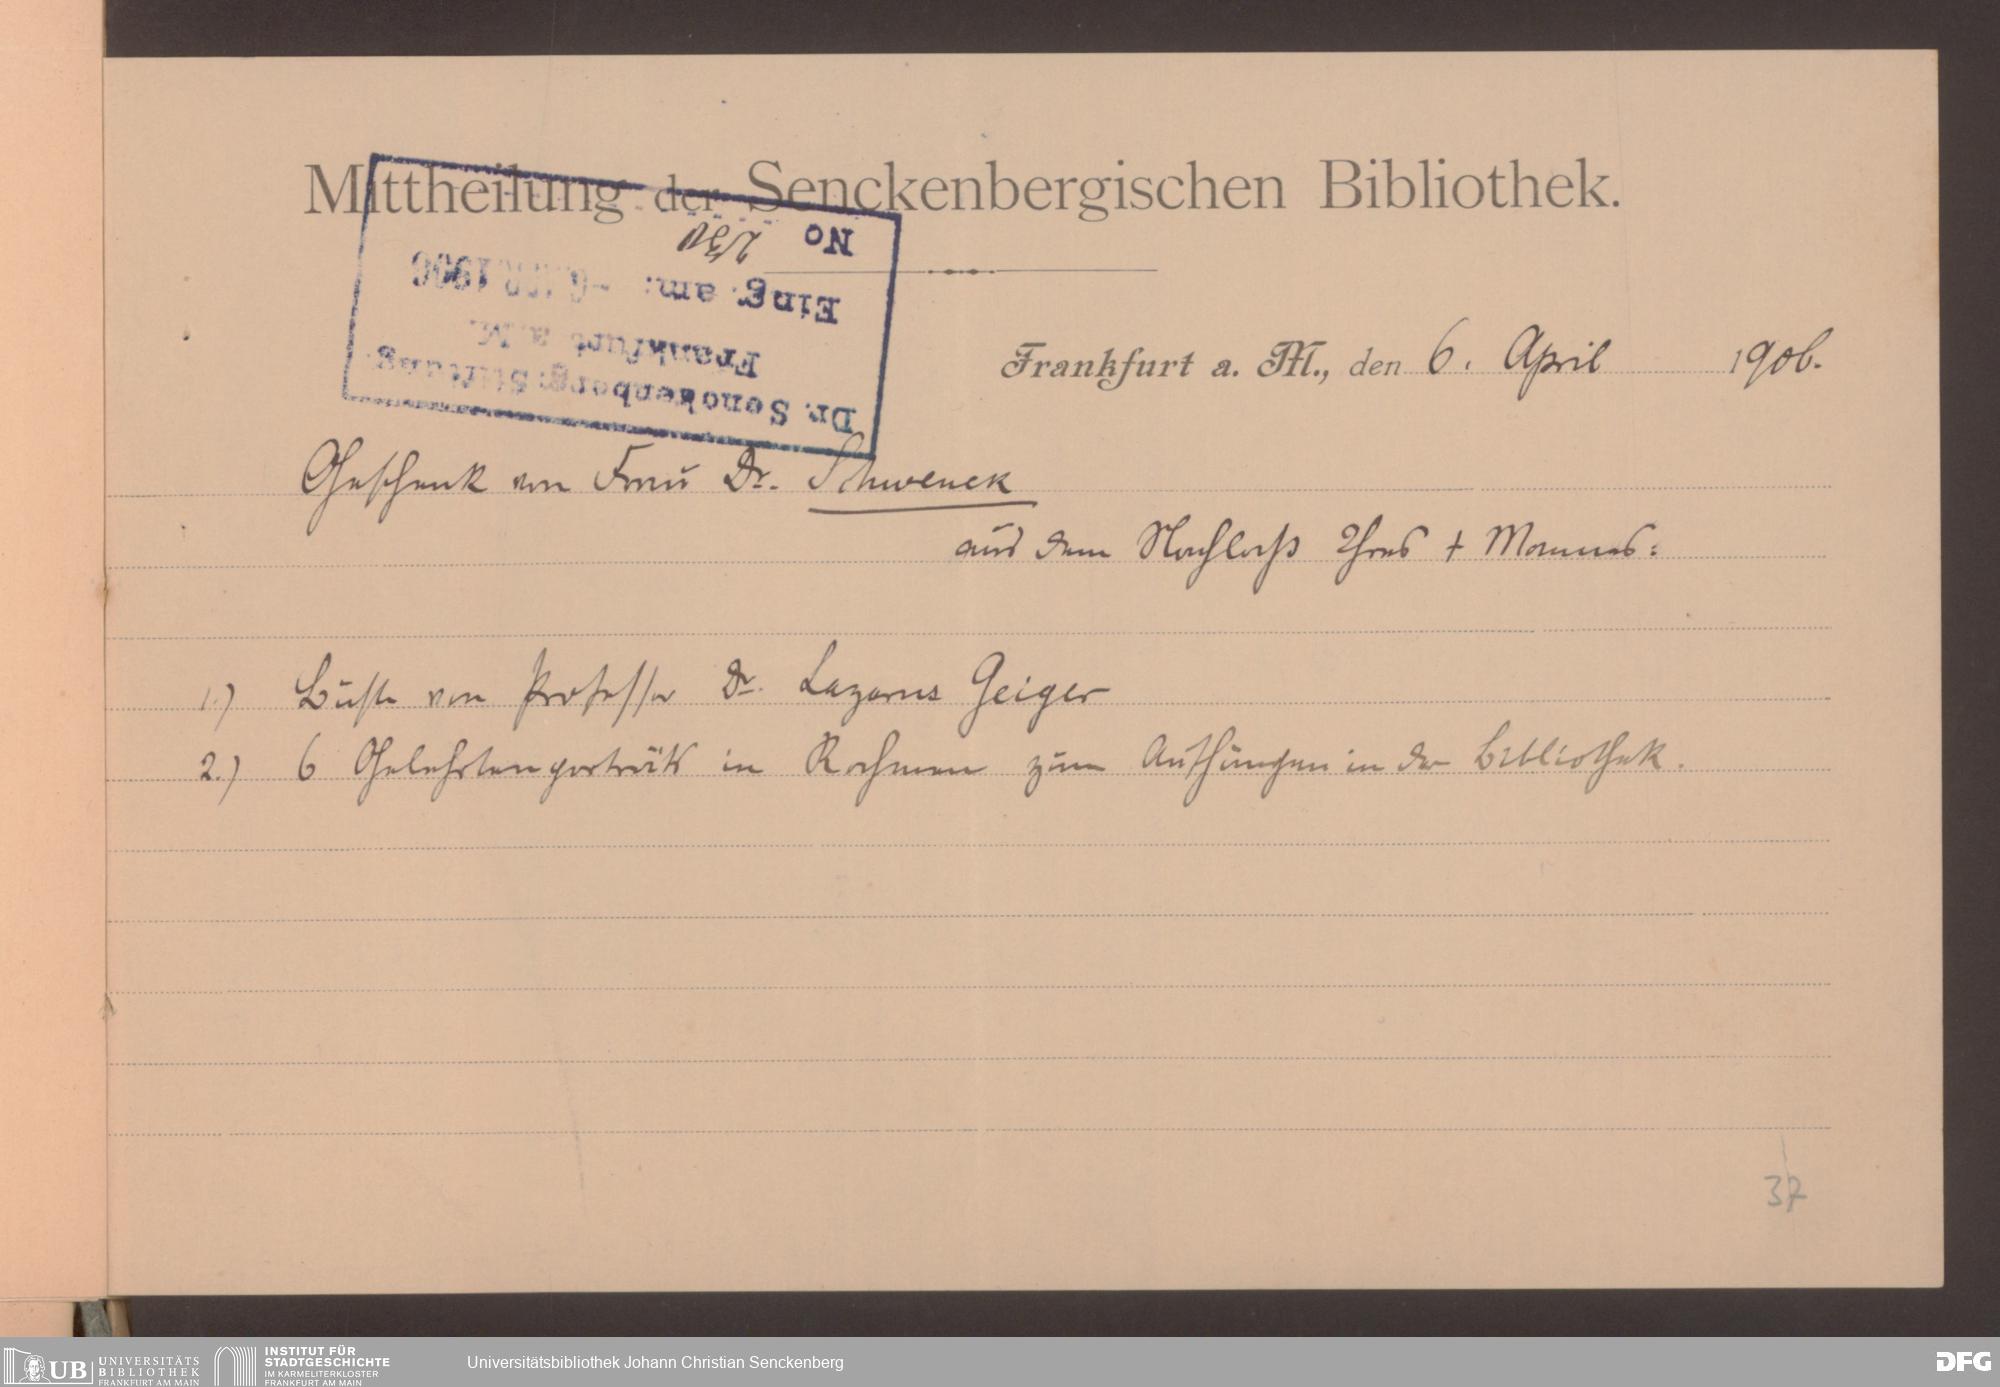 Mittheilung der Senckenbergischen Bibliothek.
Dr. Senckenberg: Stiftung.
Frankfurt a. M.
Eing. am: -6. APR. 1906
No 230
Frankfurt a. M., den 6. April 1906.
Geschenk von Frau Dr. Schwenck
aus dem Nachlaß Ihres † Mannes:
1.) Büste von Professor Dr. Lazarus Geiger
2.) 6 Gelehrtenporträts in Rahmen zum Aufhängen in der Bibliothek.
37
UB UNIVERSITÄTS BIBLIOTHEK FRANKFURT AM MAIN
INSTITUT FÜR STADTGESCHICHTE IM KARMELITERKLOSTER FRANKFURT AM MAIN
Universitätsbibliothek Johann Christian Senckenberg
DFG